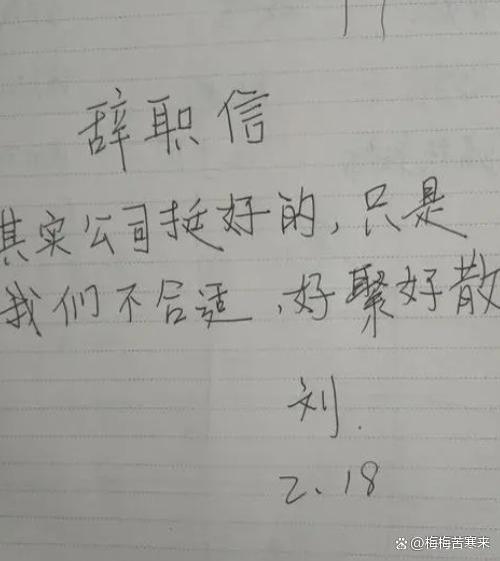 辞职信
其实公司挺好的,只是
我们不合适,好聚好散
刘.
2、18
@梅梅苦寒来